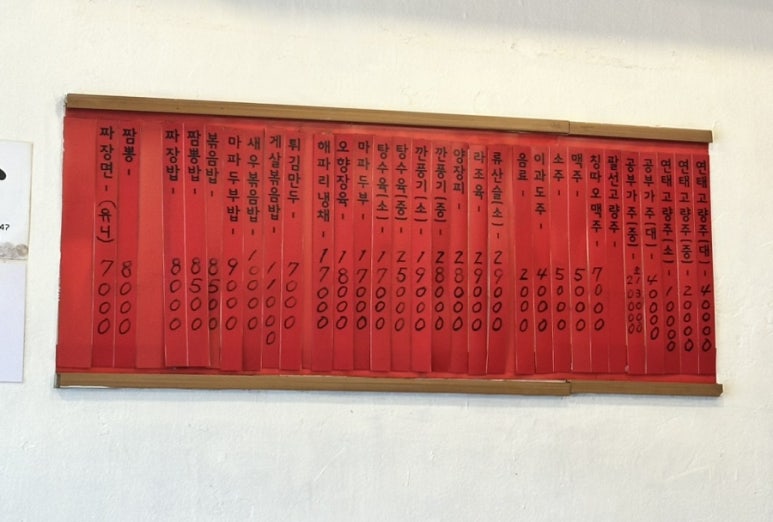 짜장면-(유니) 7000
짬뽕- 8000
짜장밥- 8000
짬뽕밥- 8500
볶음밥- 8500
마파두부밥- 9000
새우볶음밥- 10000
게살볶음밥- 11000
튀김만두- 7000
해파리냉채- 17000
오향장육- 18000
마파두부- 17000
탕수육(소)- 17000
탕수육(중)- 25000
깐풍기(소)- 19000
깐풍기(중)- 28000
양장피- 28000
라조육- 29000
류산슬(소)- 29000
음료- 2000
이과도주- 4000
소주- 5000
맥주- 5000
칭따오맥주- 7000
팔선고량주-
공부가주(중)-
공부가주(대)- 40000
연태고량주(소)- 10000
연태고량주(중)- 20000
연태고량주(대)- 40000
47